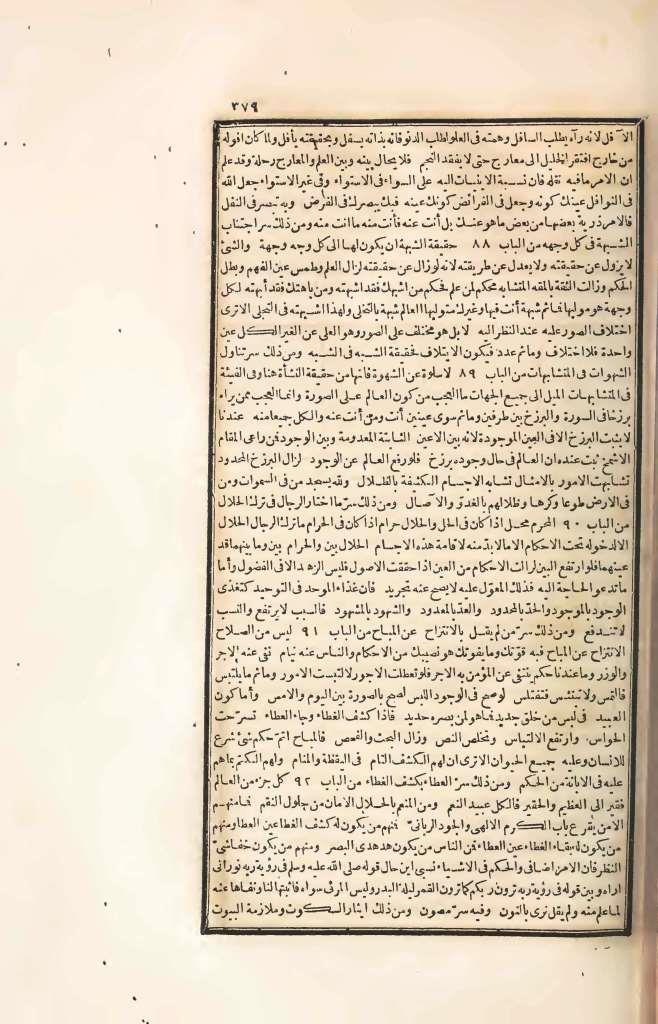 ٣٧٩
الآفل لانه رآه يطلب السافل وهمته فى العلو لطلب الدنو فانه بذاته يسفل وبحقيقته يأفل ولما كان افوله
من خارج افتقر الخليل الى معارج حتى لا يفقد النجم فلا يحال بينه وبين العلم والمعارج رحلة وقد علم
ان الامر مافيه نقله فان نسبة الاينيات اليه على السواء فى الاستواء وفى غير الاستواء جعل الله
فى النوافل عينك كونه وجعل فى الفرائض كونك عينه فبك يبصرك فى الفرض وبه تبصر فى النفل
فالامر ذرية بعضها من بعض ما هو عنك بل أنت عنه فأنت منه ما انت منه ومن ذلك سر اجتناب
الشبهة فى كل وجهه من الباب ٨٨ حقيقة الشبهة ان يكون لها الى كل وجه وجهة والشئ
لا يزول عن حقيقته ولا يعدل عن طريقته لانه لو زال عن حقيقته لزال العلم وطمس عين الفهم وبطل
الحكم وزالت الثقة بالمقه المتشابه محكم لمن علم فحكم من اشبهك فقد اشبهته ومن باهتك فقد أبهته لكل
وجهة هو موليها فماثم شبهة أنت فيها وغيرك متوليها العالم شبهة بالتخلى ولهذا اشبهته فى التجلى الاترى
اختلاف الصور عليه عند النظر اليه لابل هو مختلف على الصور وهو العلى عن الغير الكل عين
واحدة فلا اختلاف وماثم عدد فيكون الايتلاف لحقيقة الشبه فى الشبه ومن ذلك سر تناول
الشهوات فى المتشابهات من الباب ٨٩ لاسلوة عن الشهوة فانها من حقيقة النشأة هنا وفى الفيئة
فى المتشابهات الميل الى جميع الجهات ما العجب من كون العالم على الصورة وانما العجب ممن يراه
برزخا فى السورة والبرزخ بين طرفين وماثم سوى عينين أنت ومن أنت عنه والكل جميعا منه عندنا
لا يثبت البرزخ الا فى العين الموجودة لانه بين الاعين الثابتة المعدومة وبين الوجود فمن راعى المقام
الاشمخ ثبت عنده ان العالم فى حال وجوده برزخ فلو رفع العالم عن الوجود لزال البرزخ المحدود
تشابهت الامور بالامثال تشابه الاجسام الكثيفة بالظلال ولله يسجد من فى السموات ومن
فى الارض طوعا وكرها وظلالهم بالغدو والآصال ومن ذلك سر ما اختار الرجال فى ترك الحلال
من الباب ٩٠ المحرم محل اذا كان فى الحل والحلال حرام اذا كان فى الحرام ما ترك الرجال الحلال
الالدخوله تحت الاحكام الا مالابد منه لاقامة هذه الاجسام الحلال بين والحرام بين وما بينهما قد
عينهما فلو ارتفع البين لزالت الاحكام من العين اذا حققت الاصول فليس الزهد الا فى الفضول وأما
ما تدعو الحاجة اليه فذلك المعول عليه لا يصح عنه تجريد فان غذاء الموحد فى التوحيد كتغذى
الوجود بالموجود والحد بالمحدود والعقد بالمعدود والشهود بالمشهود فالسبب لا يرتفع والنسب
لا تندفع ومن ذلك سر من لم يقل بالانتزاح عن المباح من الباب ٩١ ليس من الصلاح
الانتزاح عن المباح فبه قوتك وما يفوتك هو نصيبك من الاحكام والناس عنه نيام نفى عنه الاجر
والوزر وما عندنا حكم ينتفى عن المؤمن به الاجر فلو تعطلت الاجور لالتبست الامور وماثم ما يلتبس
فالتمس ولا تبتئس فتفتلس لو صح فى الوجود اللبس لصح بالصورة بين اليوم والامس وأما كون
العبيد فى لبس من خلق جديد فما هو لمن بصره حديد فاذا كشف الغطاء وجاء العطاء تسرحت
الحواس وارتفع الالتباس وتخلص النص وزال البحث والفحص فالمباح اتم حكم شئ شرع
للانسان وعليه جميع الحيوان الاترى ان لهم الكشف التام فى اليقظة والمنام ولهم الكتم بما هم
عليه فى الابانة من الحكم ومن ذلك سر العطاء بكشف الغطاء من الباب ٩٢ كل جزء من العالم
فقير الى العظيم والحقير فالكل عبيد النعم ومن المنعم بالحلال الامان من حلول النقم فامنهم
الامن يقرع باب الكرم الالهى والجود الربانى فمنهم من يكون له كشف الغطا عين العطا ومنهم
من يكون له بقاء الغطاء عين العطاء فمن الناس من يكون هدهدى البصر ومنهم من يكون خفاشى
النظر فان الامر اضافى والحكم فى الاشياء نسبى اين حال قوله صلى الله عليه وسلم فى رؤية ربه نورانى
اراه وبين قوله فى رؤية ربه ترون ربكم كما ترون القمر ليلة البدر وليس المرئى سواء فأثبتها لنا ونفاها عنه
لما علم منه ولم يقل نرى بالنون وفيه سر مصون ومن ذلك ايثار السكوت وملازمة البيوت